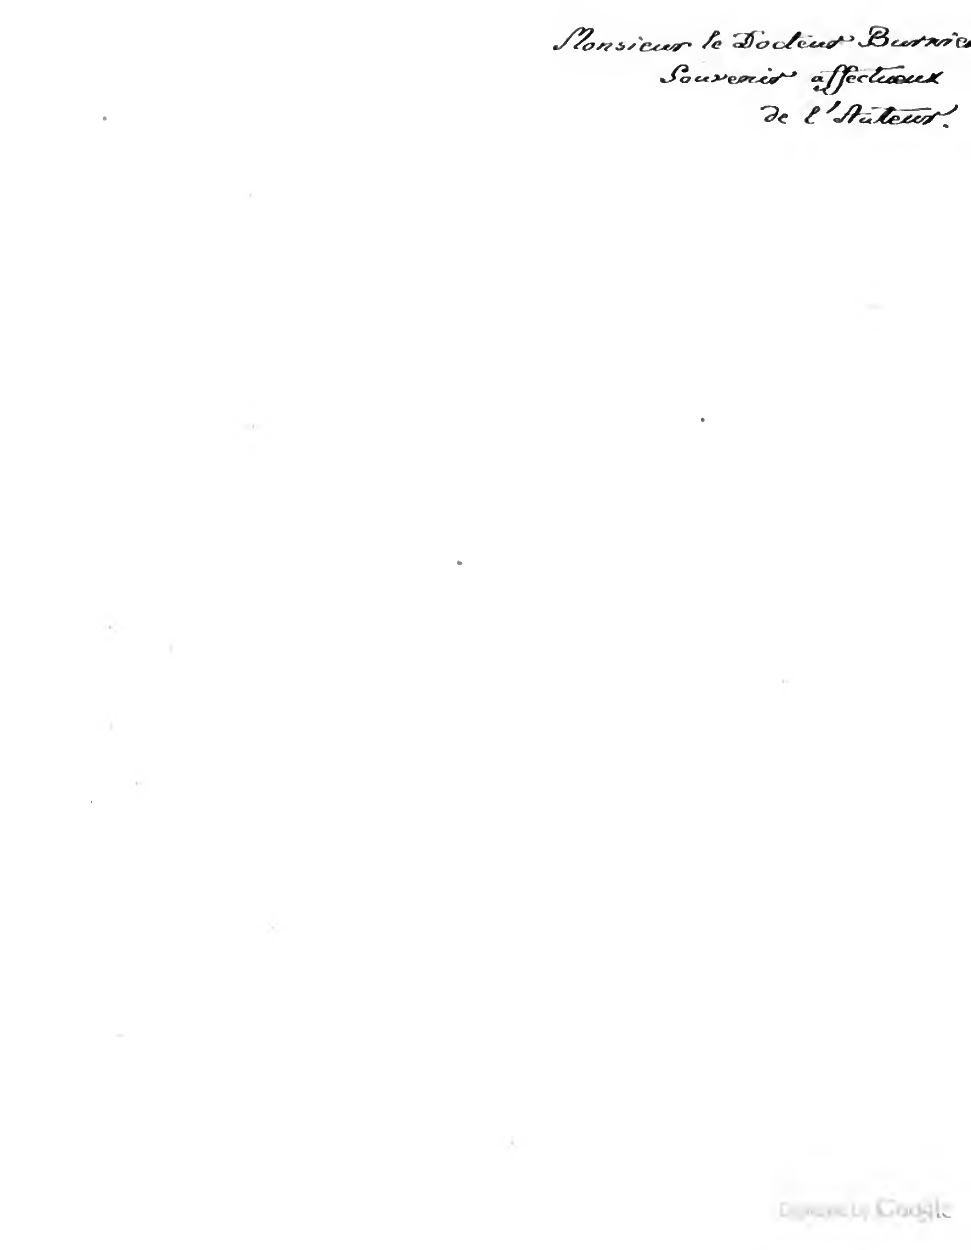 Monsieur le Docteur Burnie
Souvenir affectueux
de l'Auteur.
Digitized by Google